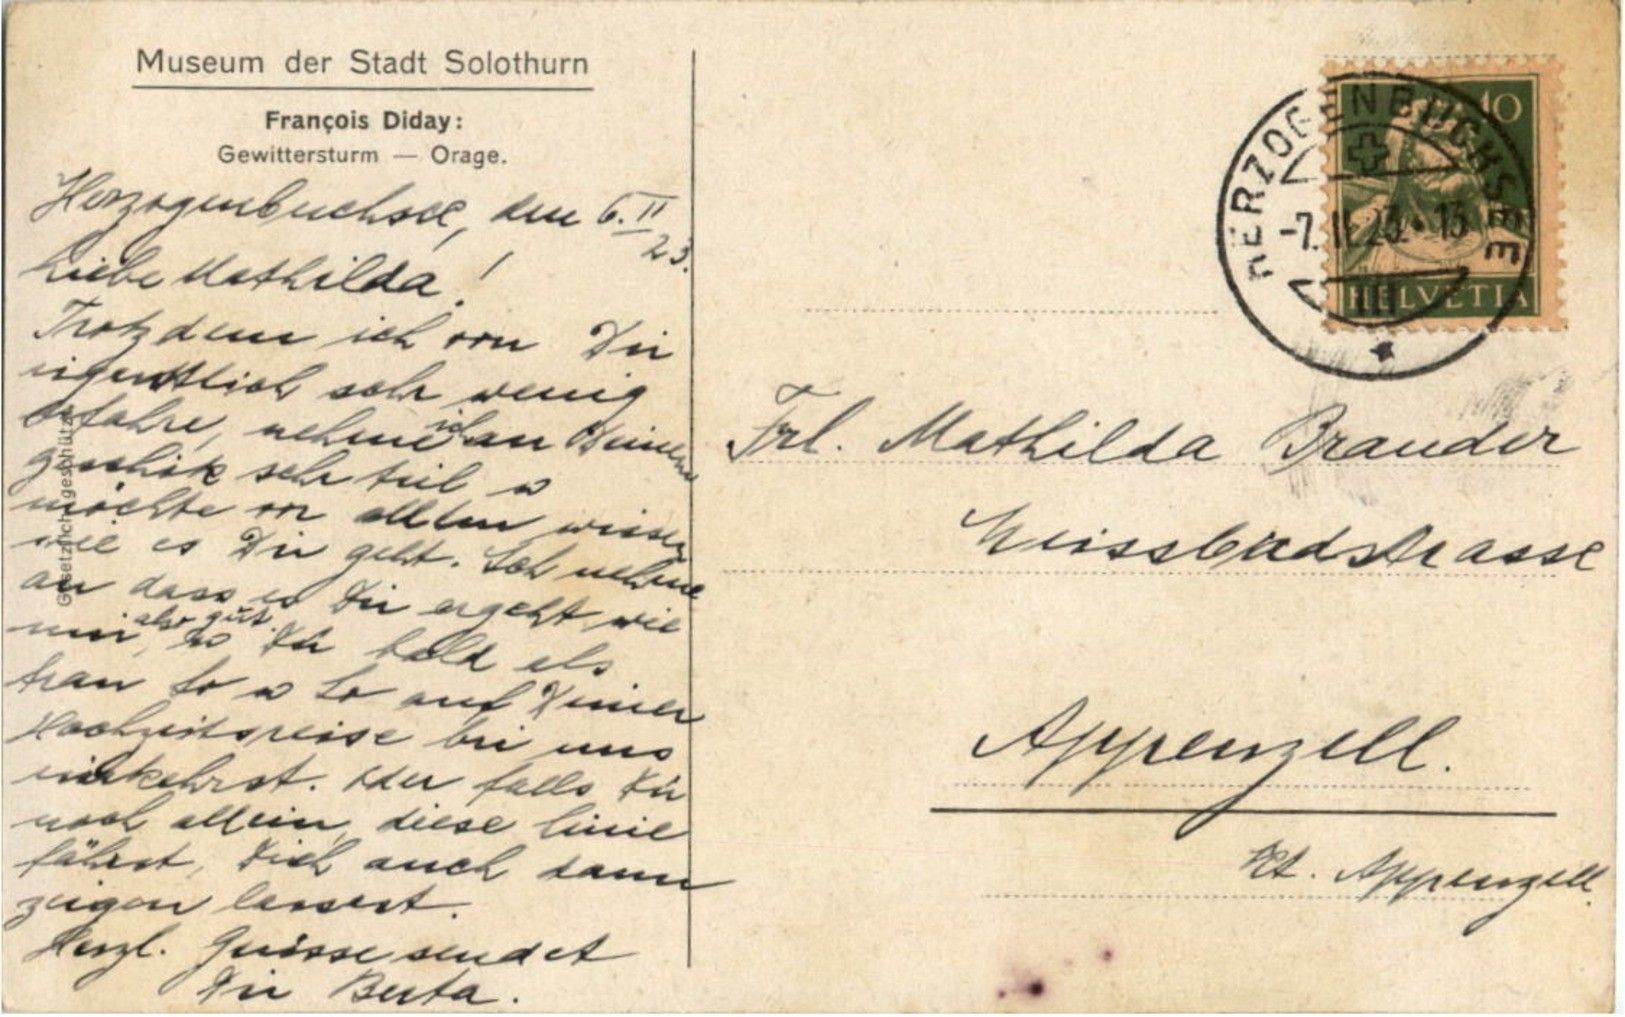 Museum der Stadt Solothurn
François Diday:
Gewittersturm — Orage.
Herzogenbuchsee, den 6. II
23.
Liebe Mathilda!
Trotzdem ich von Dir
eigentlich sehr wenig
erfahre, nehme ich an Deinem
geschik sehr teil u
möchte vor allem wissen
wie es Dir geht. Ich nehme
an dass es Dir ergeht wie
mir, also gut. Du bald als
frau So u So auf Deiner
Hochzeitsreise bei uns
einkehrst. oder falls Du
noch allein, diese linie
fährst, Dich auch dann
zeigen lassest.
Herzl. Grüsse sendet
Dir Berta.
Gesetzlich geschützt
HERZOGENBUCHSEE
-7. II 23.-13
III
10
HELVETIA
Frl. Mathilda Brander
Weissbadstrasse
Appenzell.
Kt. Appenzell.